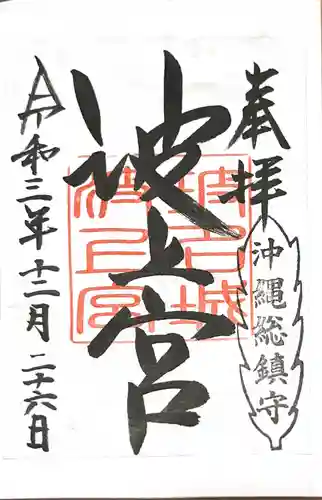 奉拝
沖縄総鎮守
波上宮
令和三年十二月二十六日